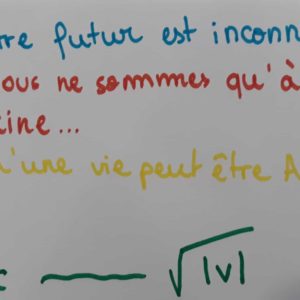 rre futur est inconn
ous ne sommes qu'à
ine...
'une vie peut être A
√|v|